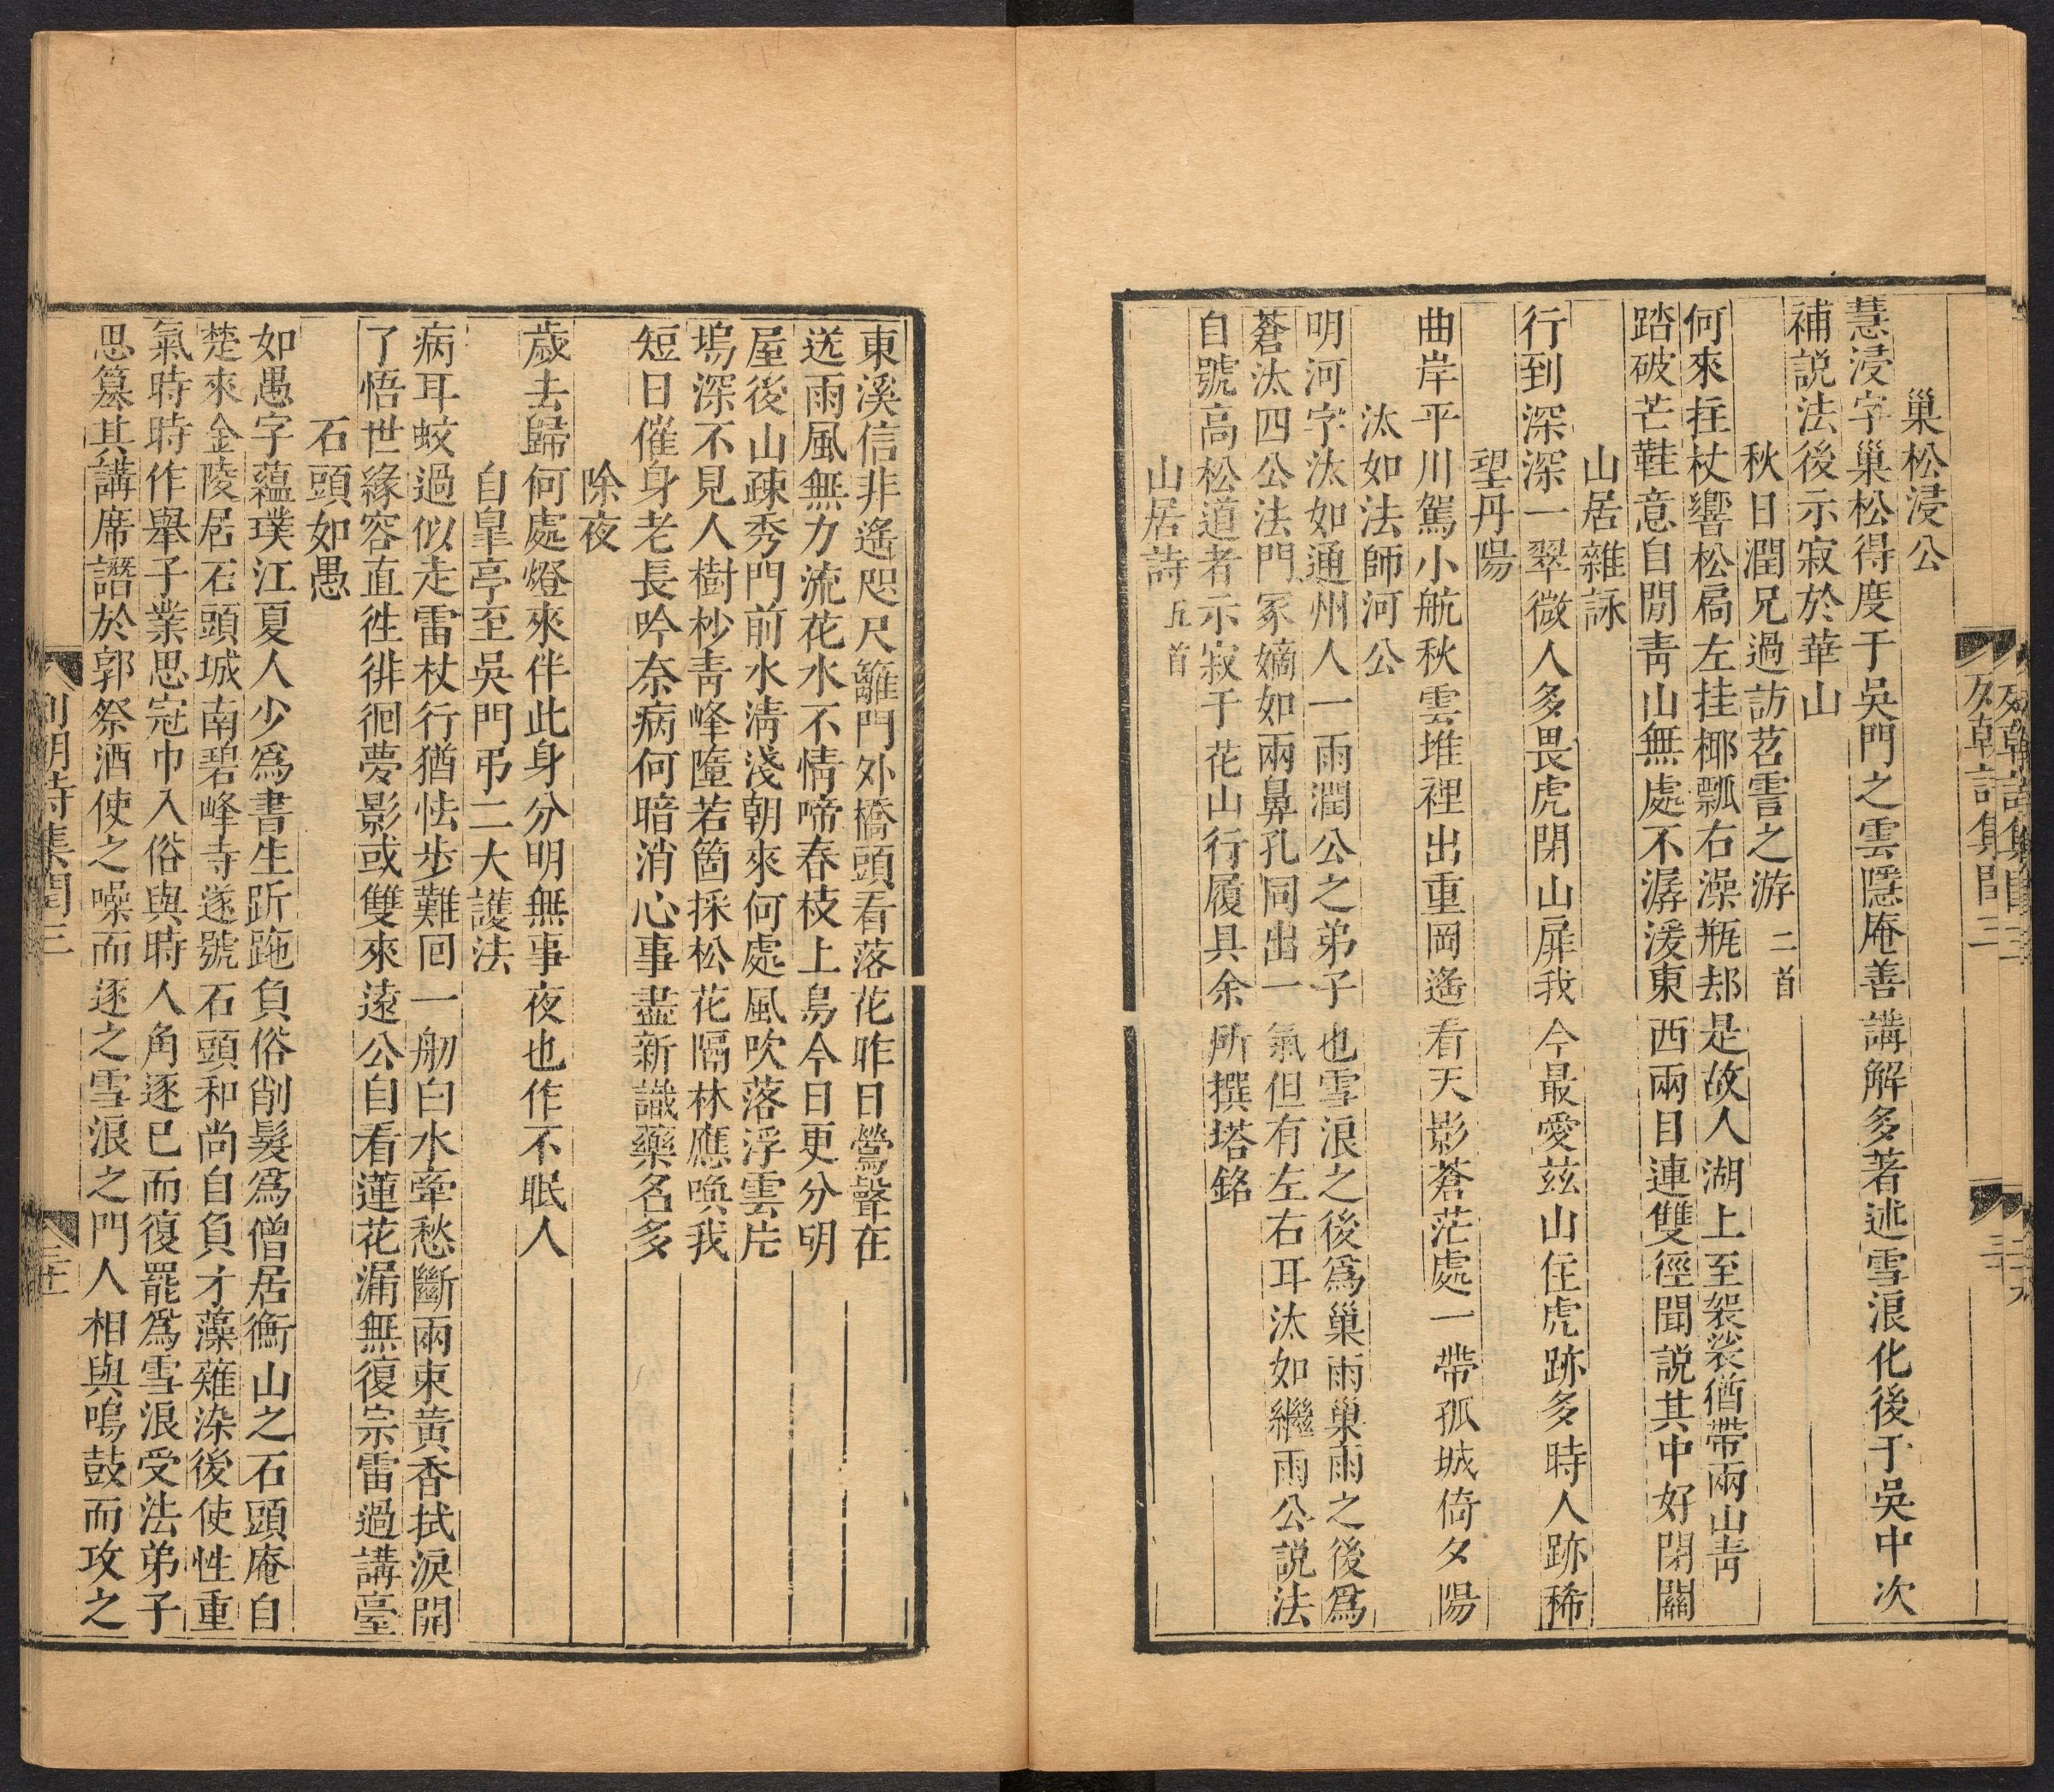 巢松浸公
慧浸字巢松得度于吳門之雲隱庵善講解多著述雪浪化後于吳中次
補說法後示寂於華山
秋日潤兄過訪苕霅之游二首
何來拄杖響松扃左挂椰瓢右澡瓶却是故人湖上至袈裟猶帶兩山青
踏破芒鞋意自閒青山無處不潺湲東西兩目連雙徑聞說其中好閉關
山居雜詠
行到深深一翠微人多畏虎閉山扉我今最愛茲山住虎跡多時人跡稀
望丹陽
曲岸平川駕小航秋雲堆裡出重岡遙看天影蒼茫處一帶孤城倚夕陽
汰如法師河公
明河字汰如通州人一雨潤公之弟子也雪浪之後為巢雨巢雨之後為
蒼汰四公法門冢嫡如兩鼻孔同出一氣但有左右耳汰如繼雨公說法
自號高松道者示寂于花山行履具余所撰塔銘
山居詩五首
東溪信非遙咫尺籬門外橋頭看落花昨日鶯聲在
送雨風無力流花水不情啼春枝上鳥今日更分明
屋後山疎秀門前水清淺朝來何處風吹落浮雲片
塢深不見人樹杪青峰墮若箇採松花隔林應喚我
短日催身老長吟奈病何暗消心事盡新識藥名多
除夜
歲去歸何處燈來伴此身分明無事夜也作不眠人
自皐亭至吳門弔二大護法
病耳蚊過似走雷杖行猶怯步難回一舠白水牽愁斷兩束黃香拭淚開
了悟世緣容直徃徘徊夢影或雙來遠公自看蓮花漏無復宗雷過講臺
石頭如愚
如愚字蘊璞江夏人少為書生跅跑負俗削髮為僧居衡山之石頭庵自
楚來金陵居石頭城南碧峰寺遂號石頭和尚自負才藻薙染後使性重
氣時時作舉子業思冠巾入俗與時人角逐已而復罷為雪浪受法弟子
思簒其講席譖於郭祭酒使之噪而逐之雪浪之門人相與鳴鼓而攻之
列朝詩集閏三